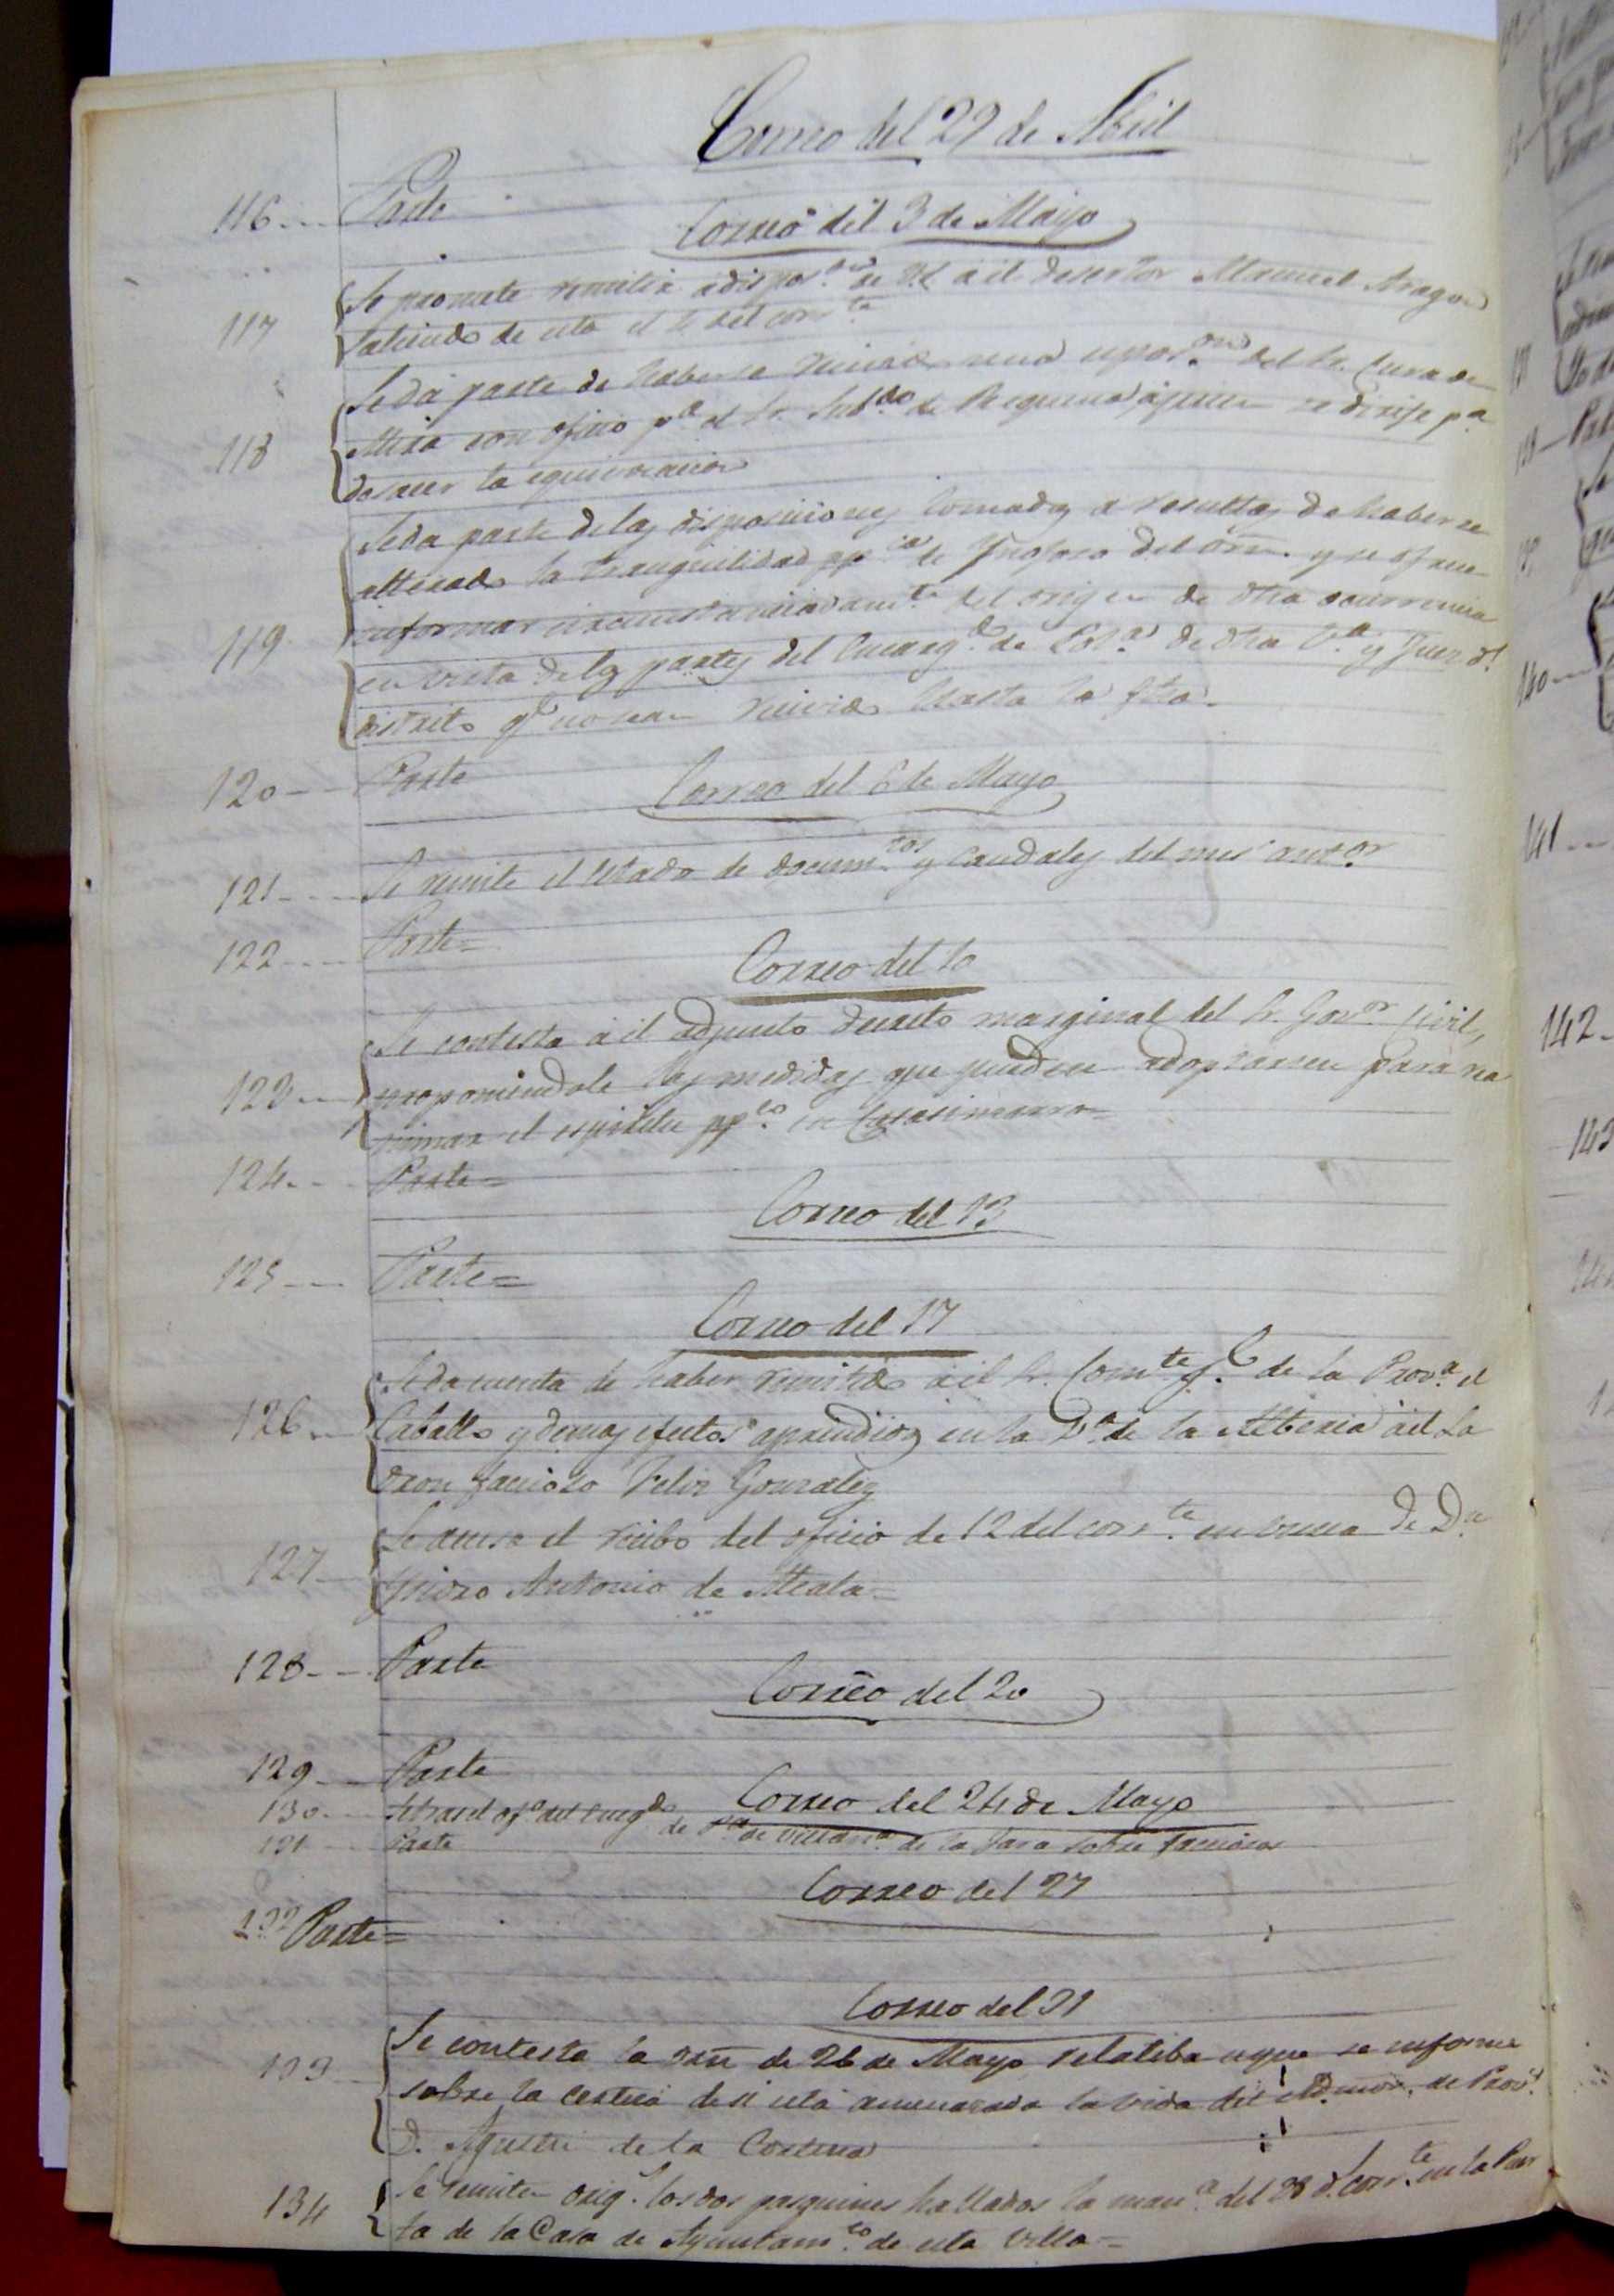 Correo del 29 de Abril
116 Parte
Correo del 3 de Mayo
117 Se promete remitir a dispos.on de V.S. á el desertor Manuel Aragon
saliendo de esta el 4 del corr.te
Se dá parte de haberse recivido una espos.on del Sr. Cura de
118 Mira con oficio p.a el Sr. Subd.do de Requena, á quien se dirije p.a
desacer la equivocacion
Se da parte de las disposiciones tomadas a resultas de haberse
alterado la tranquilidad pp.ca de Ynojoso del Orn. y se ofrece
119 informar circunstanciadam.te del origen de dha ocurrencia
en vista de los partes del Encarg.do de Pol.a de dha V.a y Juez d.l
distrito q.e no se an recivido hasta la fha.
120 Parte
Correo del 6 de Mayo
121 Se remite el estado de docum.tos y caudales del mes ant.or
122 Parte=
Correo del 10
Se contesta á el adjunto decreto marginal del Sr. Gov.or Civil,
123 proponiendole las medidas que pueden adoptarsen para rea
nimar el espiritu pp.co en Casasimarro=
124 Parte=
Correo del 13
125 Parte=
Correo del 17
Se da cuenta de haber remitido á el Sr. Com.te g.l de la Prov.a el
126 Caballo y demas efectos aprendidos en la V.a de la Alberca á el La
dron faccioso Felix Gonzalez
Se acusa el recibo del oficio de 12 del corr.te en busca de D.n
127 Ysidro Antonio de Alcala=
128 Parte
Correo del 20
129 Parte
Correo del 24 de Mayo
130 Se tras. el of.o del Encg.do de P.a de Villan.a de la Jara sobre facciosos
131 Parte
Correo del 27
132 Parte=
Correo del 31
Se contesta la orn de 26 de Mayo relatiba a que se informe
133 sobre la certeza de si está amenazada la vida del Admor. de Prov.s
D. Agustin de la Cortina
134 Se remiten orig.s los dos pasquines hallados la mañ.a del 28 d.l corr.te en la Puer
ta de la Casa de Ayuntam.to de esta Villa=